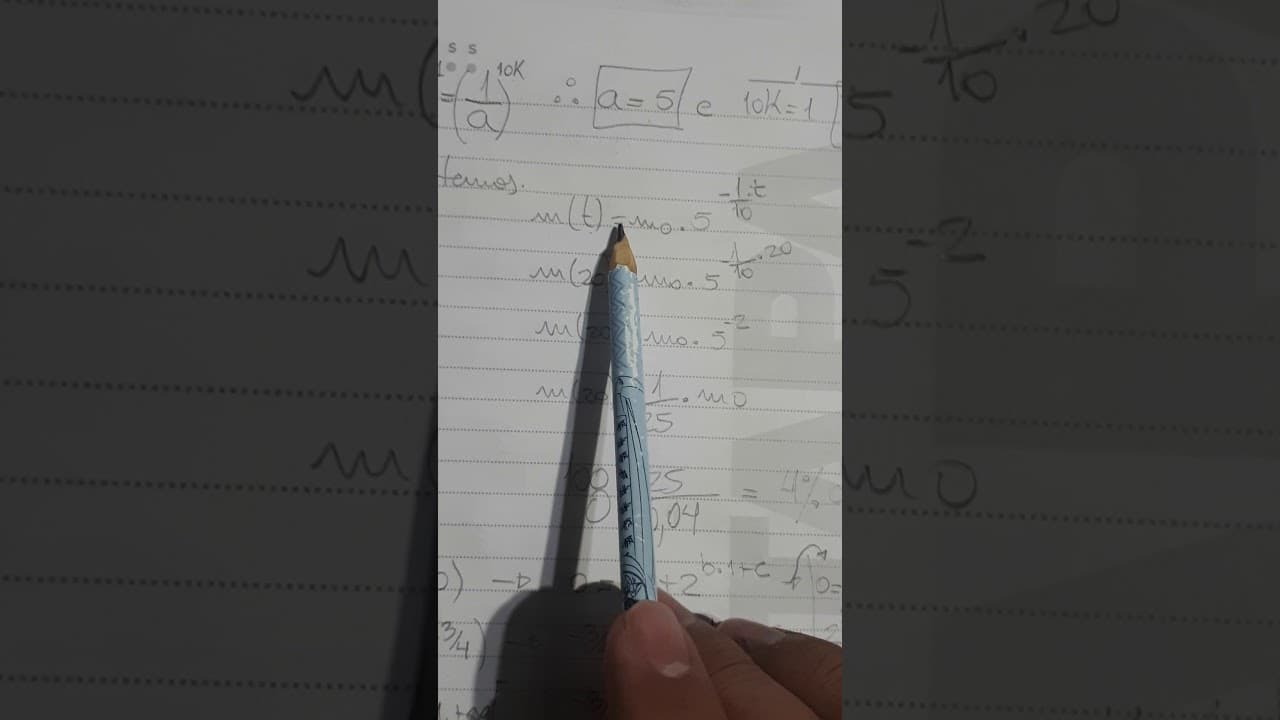 s s
=(1/a)^10K ∴ a=5 e 10K=1
temos.
m(t)=mo.5^-1/10.t
m(20 mo.5^-1/10.20
m(20 mo.5^-2
m(20 1/25.mo
100 25
0 0,04 = 4%
) → +2^b.1+c 0=
3/4) → -3